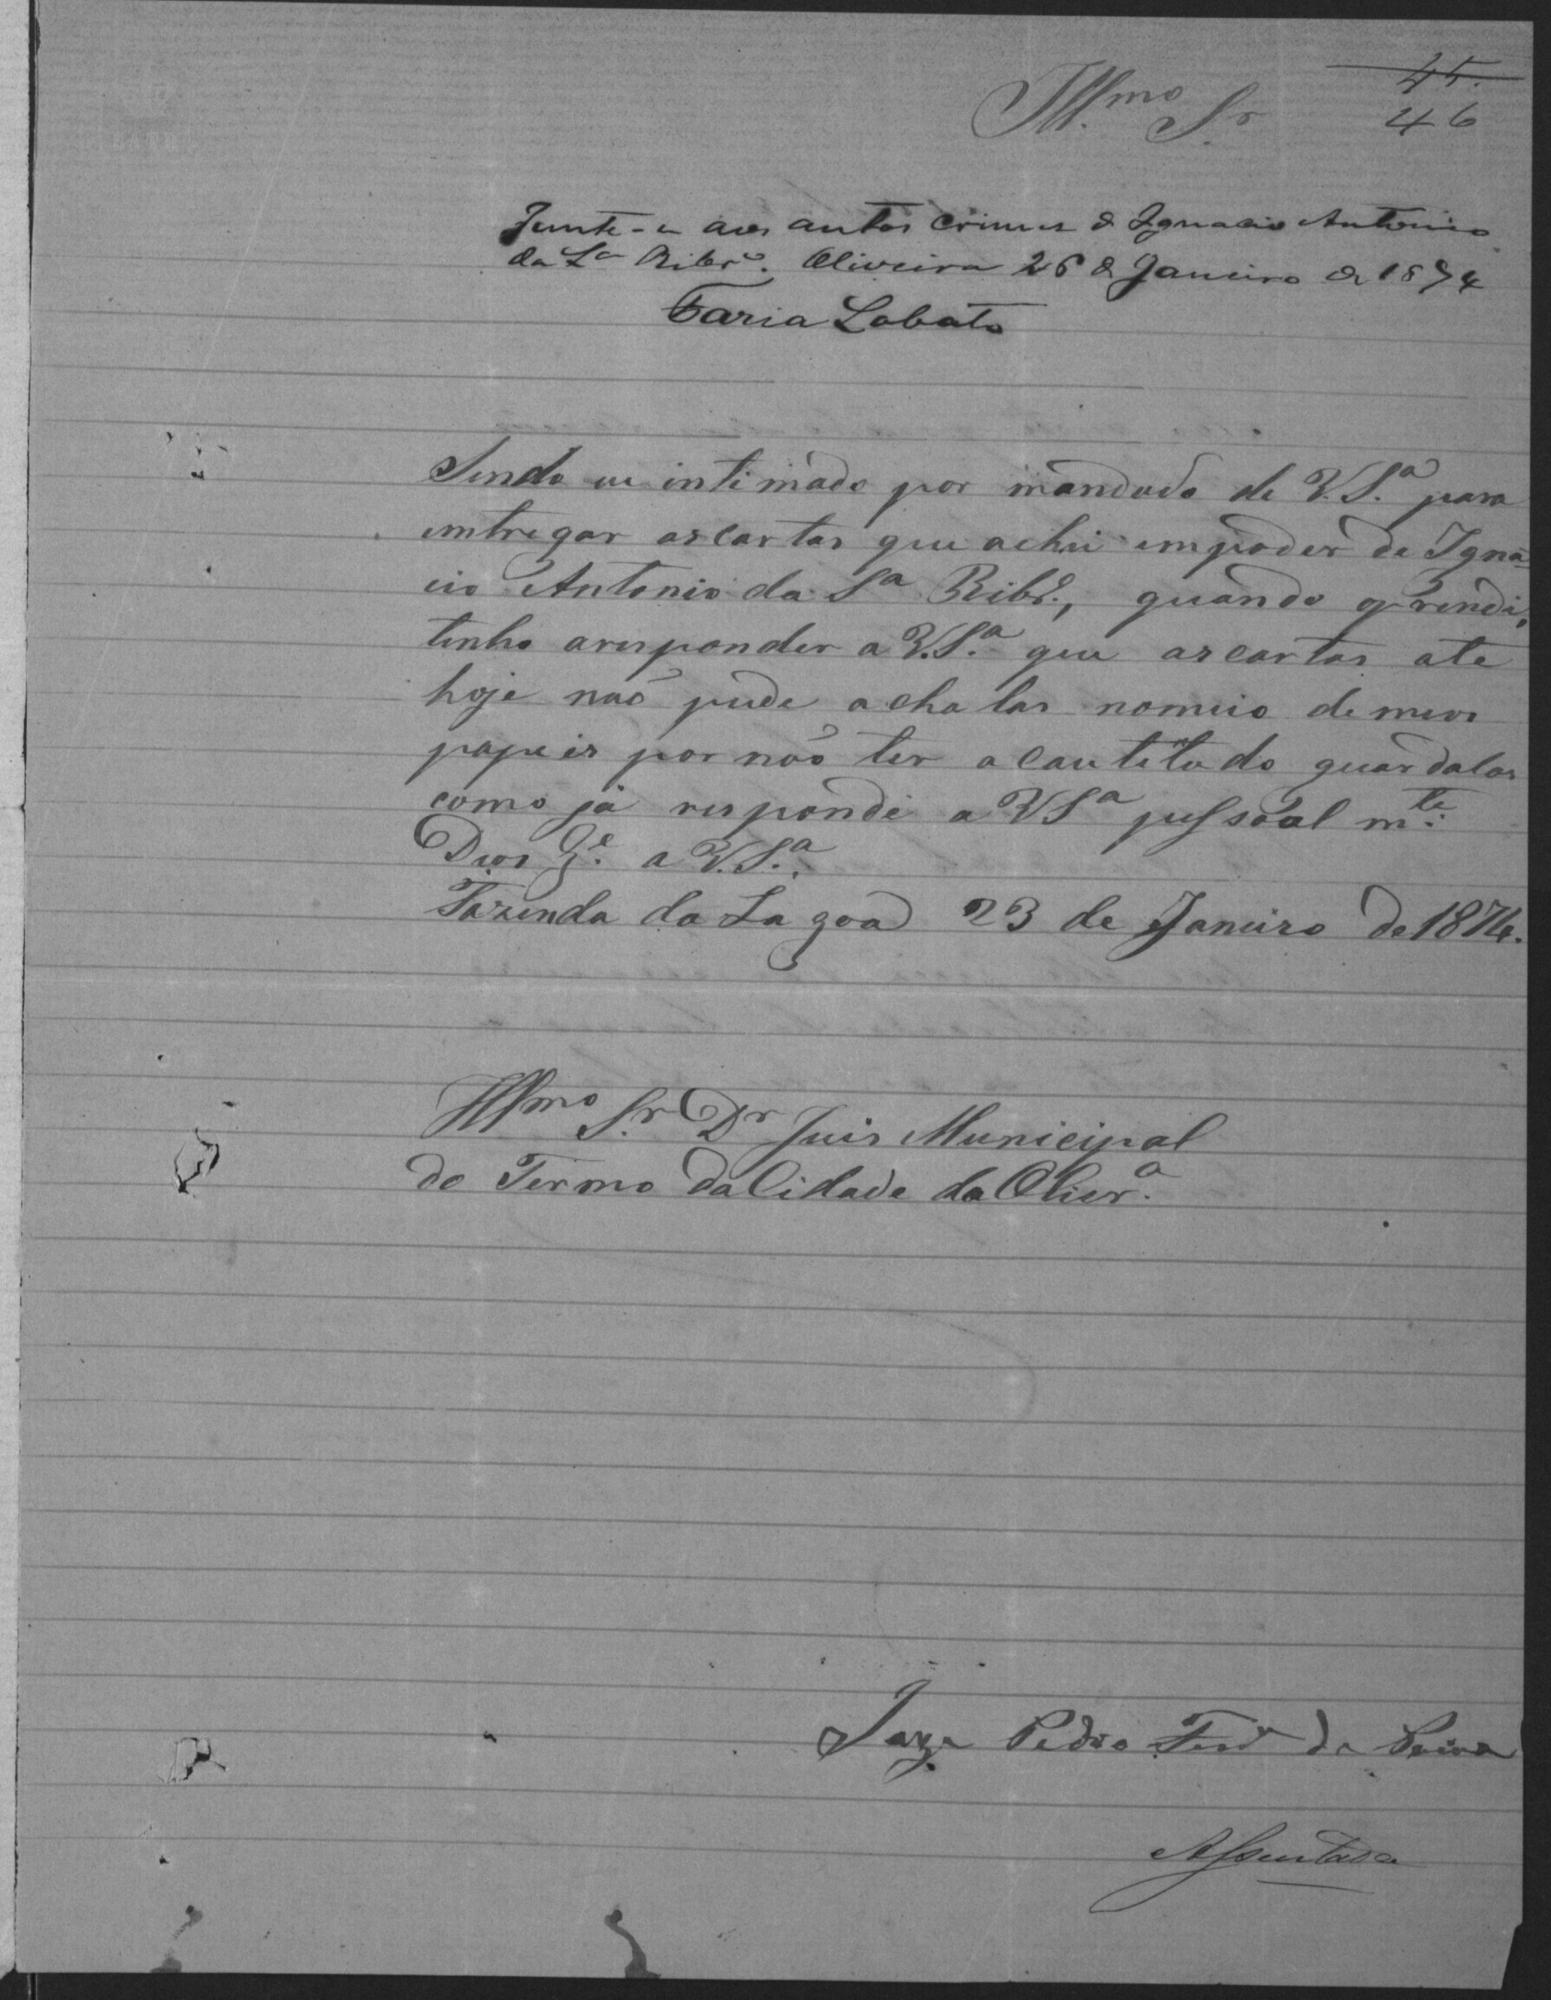 45.
46
Illmo Sr
Junte-se aos autos crimes de Ignacio Antonio
da Sa Ribro. Oliveira 26 de Janeiro de 1874
Faria Lobato
Sendo eu intimado por mandado de V.S.ª para
emtregar as cartas que achei em poder de Igna
cio Antonio da Sª Ribr.º, quando o prendi,
tenho a responder a V.S.ª que as cartas ate
hoje não pude achalas no meio de meus
papeis por não ter acautitado guardalas
como já respondi a VSª pessoal mte.
Deos G.e a V.S.ª
Fazenda da Lagoa 23 de Janeiro de 1874.
Illmo Sr. Dr Juis Municipal
do Termo da Cidade da Olivr.ª
Jose Pedro Ferr de Paiva
Assentada